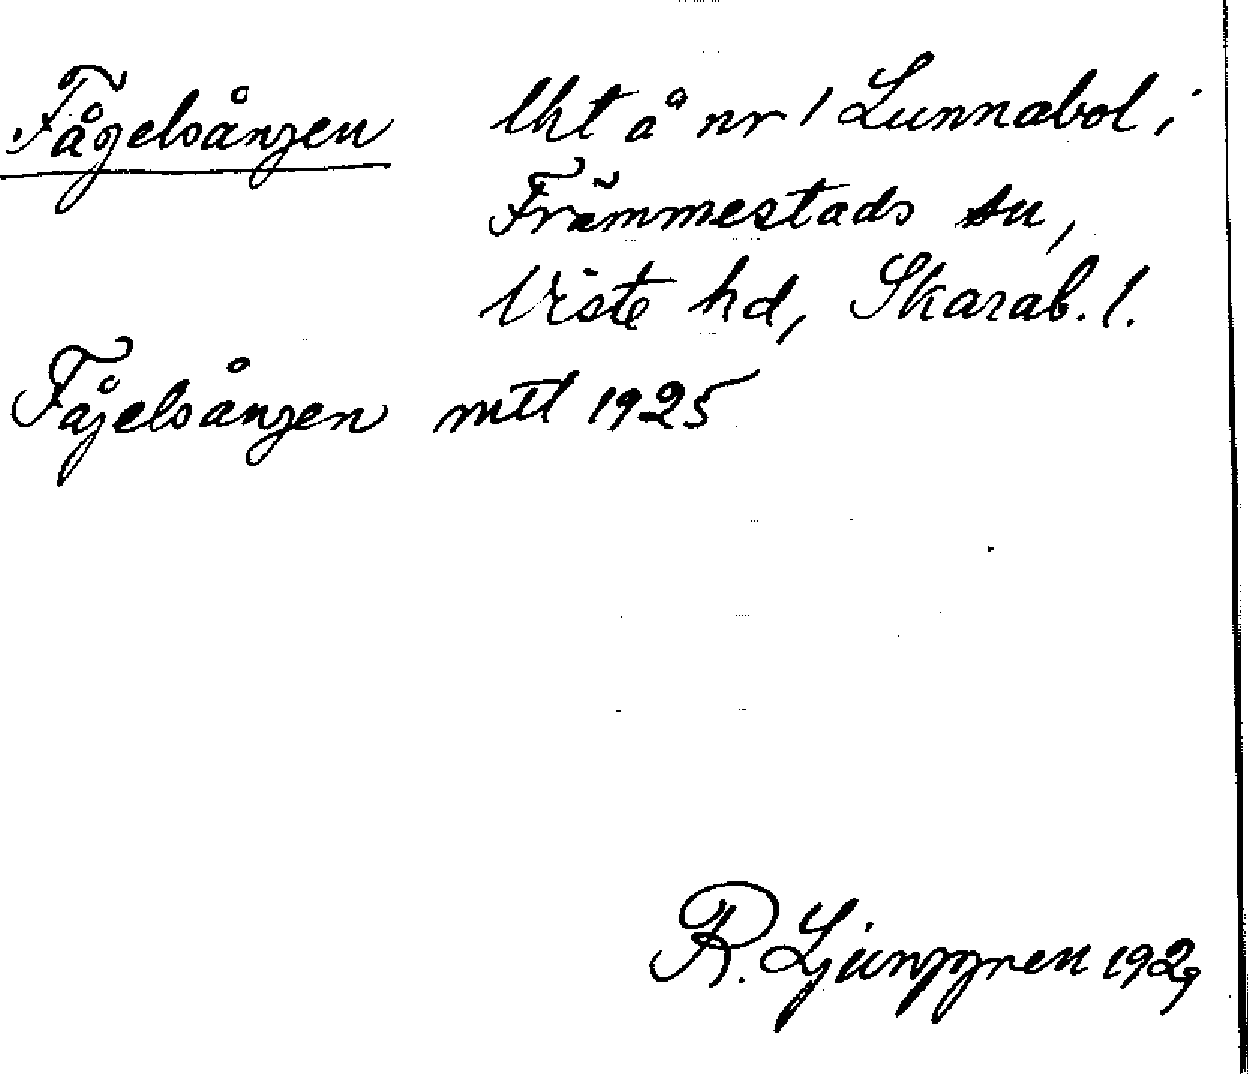 Fågelsången lht å nr 1 Lunnabol i
Främmestads sn,
Viste hd, Skarab. l.
Fågelsången mtl 1925
R. Ljunggren 1929